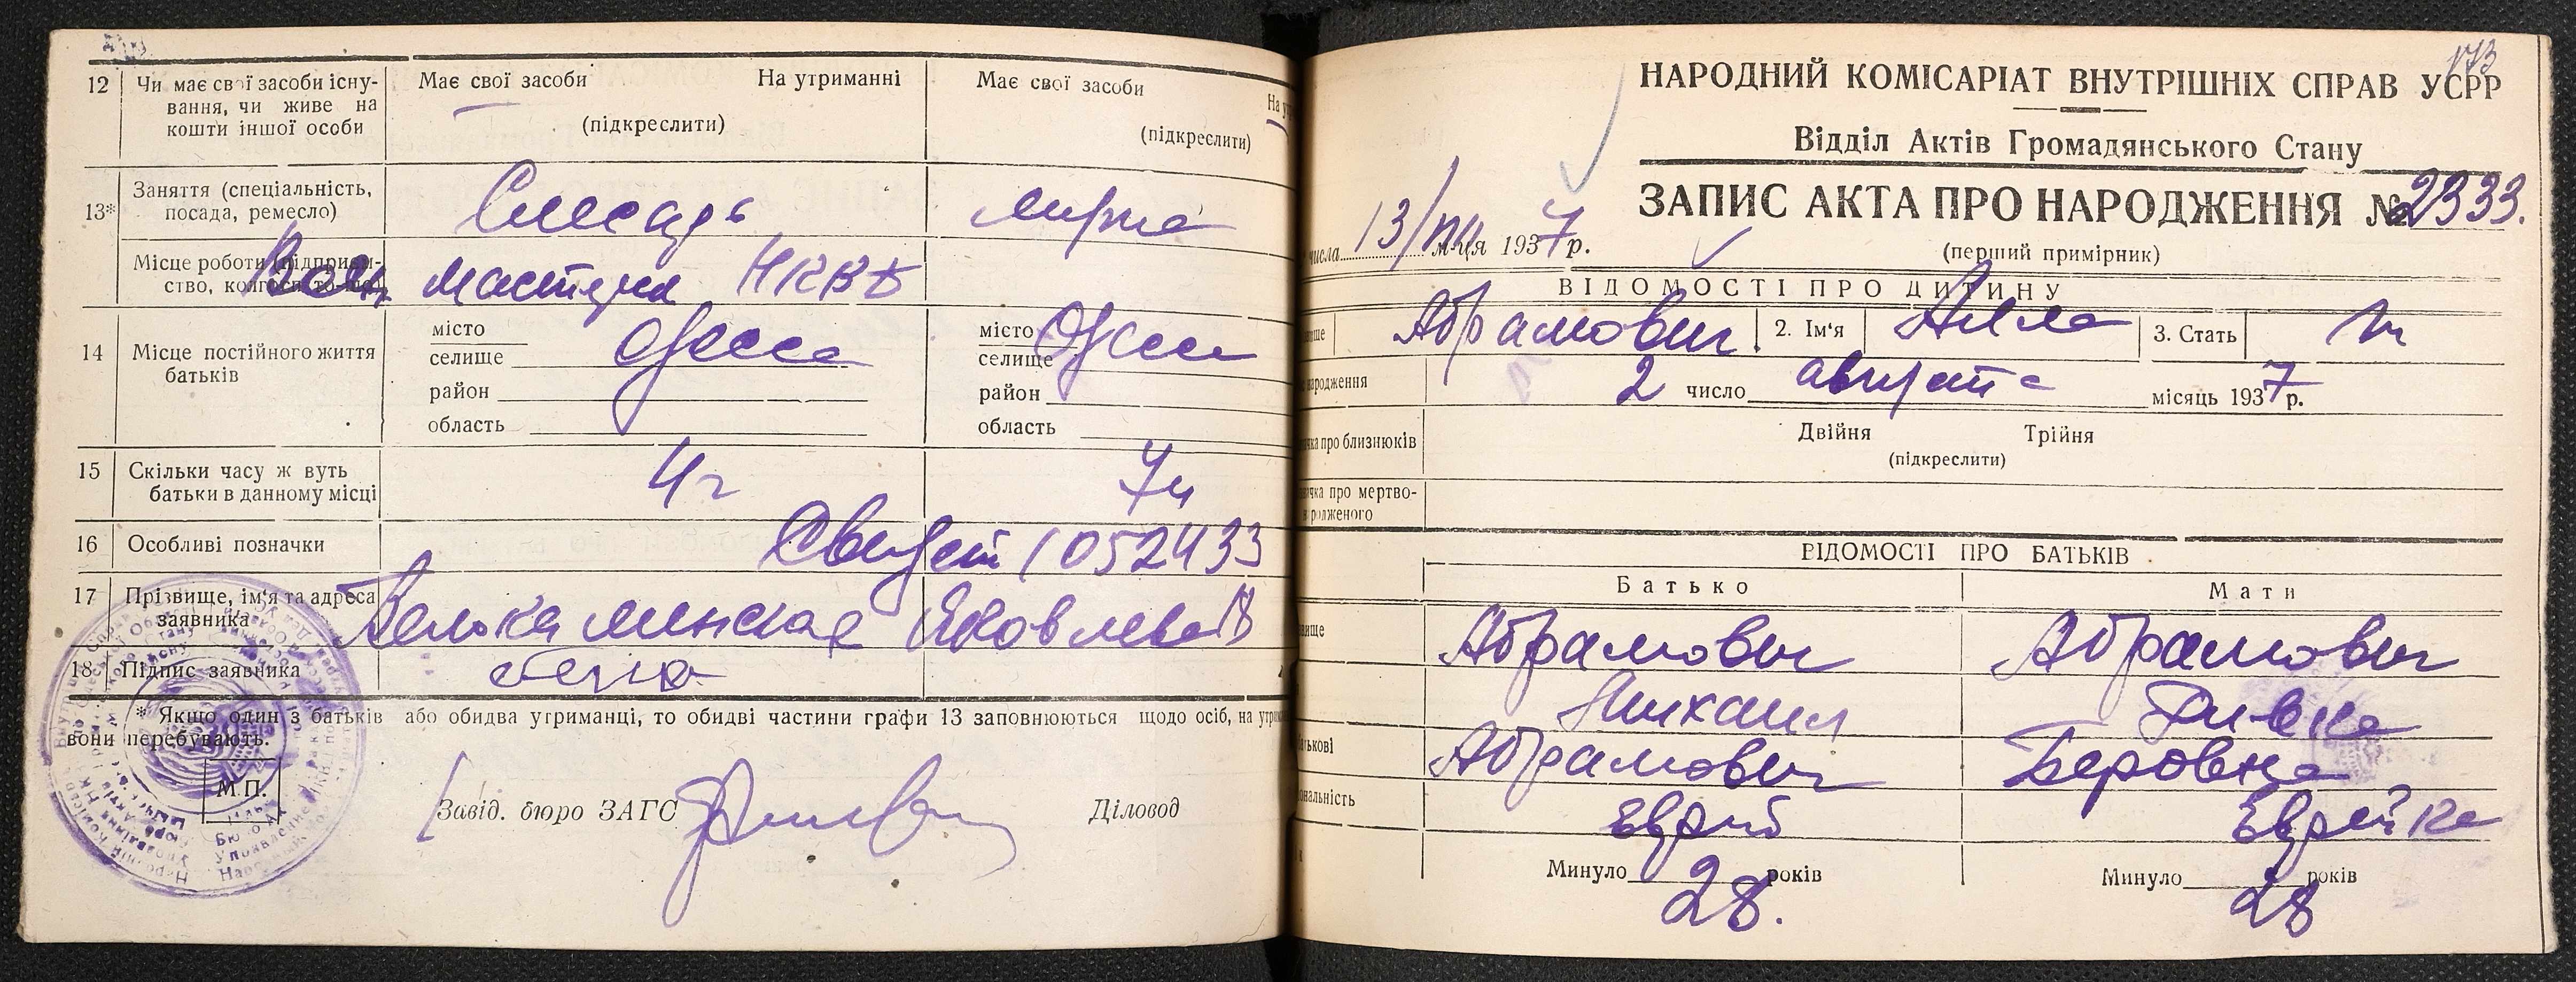 12 Чи має свої засоби існування, чи живе на кошти іншої особи
Має свої засоби На утриманні
(підкреслити)
Має свої засоби
(підкреслити)
13* Заняття (спеціальність, посада, ремесло)
Слесарь
Місце роботи (підприємство, колгосп то-що)
НКВД
14 Місце постійного життя батьків
місто
селище
район
область
Одесса
місто
селище
район
область
Одесса
15 Скільки часу ж вуть батьки в данному місці
4 г
16 Особливі позначки
052433
17 Прізвище, ім'я та адреса заявника
18 Підпис заявника
* Якщо один з батьків або обидва утриманці, то обидві частини графи 13 заповнюються щодо осіб, на
вони перебувають.
М.П.
Завід. бюро ЗАГС
Діловод
173
НАРОДНИЙ КОМІСАРІАТ ВНУТРІШНІХ СПРАВ УСРР
Відділ Актів Громадянського Стану
ЗАПИС АКТА ПРО НАРОДЖЕННЯ № 2333.
числа 13/ м-ця 1937 р.
(перший примірник)
ВІДОМОСТІ ПРО ДИТИНУ
Абрамович 2. Ім'я Алла 3. Стать
2 число августа місяць 1937 р.
Двійня Трійня
(підкреслити)
ВІДОМОСТІ ПРО БАТЬКІВ
Батько Мати
Абрамович Абрамович
Михаил Ривка
Абрамович Беровна
Еврей Еврейка
Минуло 28. років Минуло 28 років